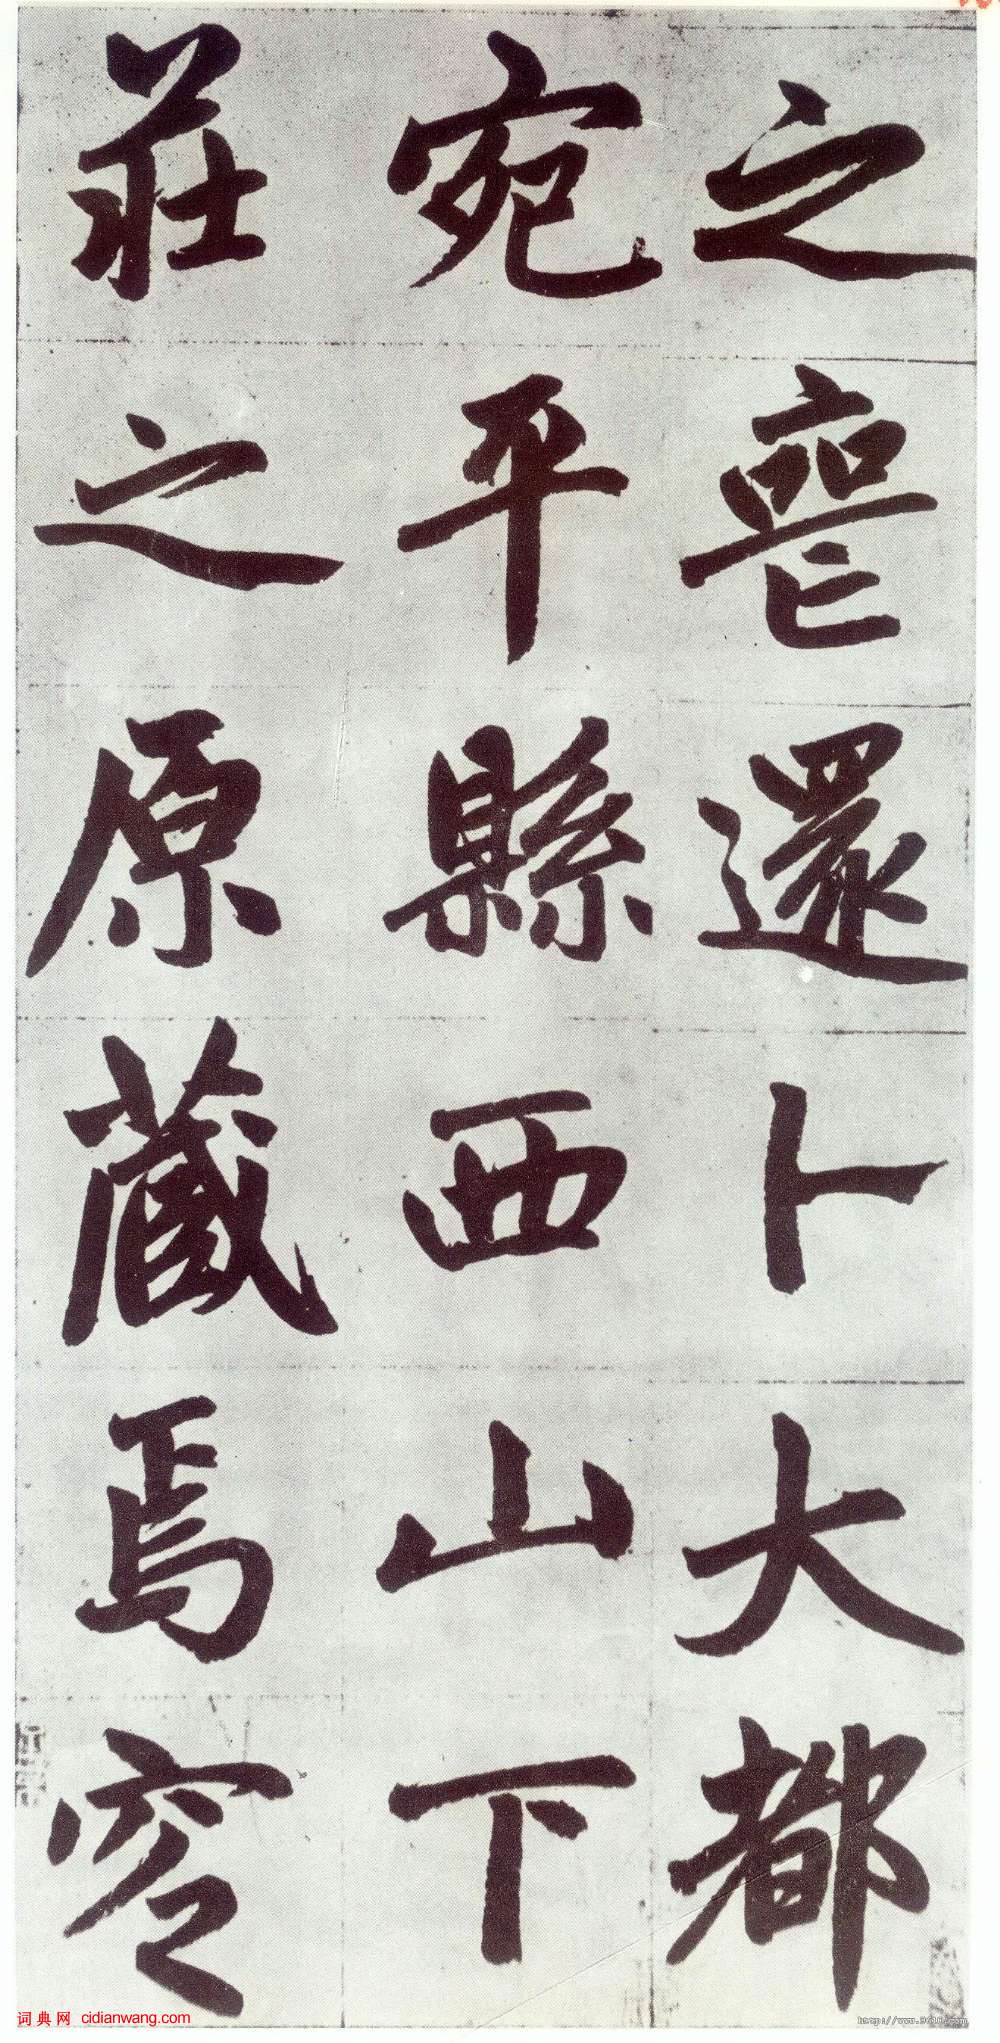 之喪還卜大都
宛平縣西山下
莊之原藏焉窆
词典网 cidianwang.com